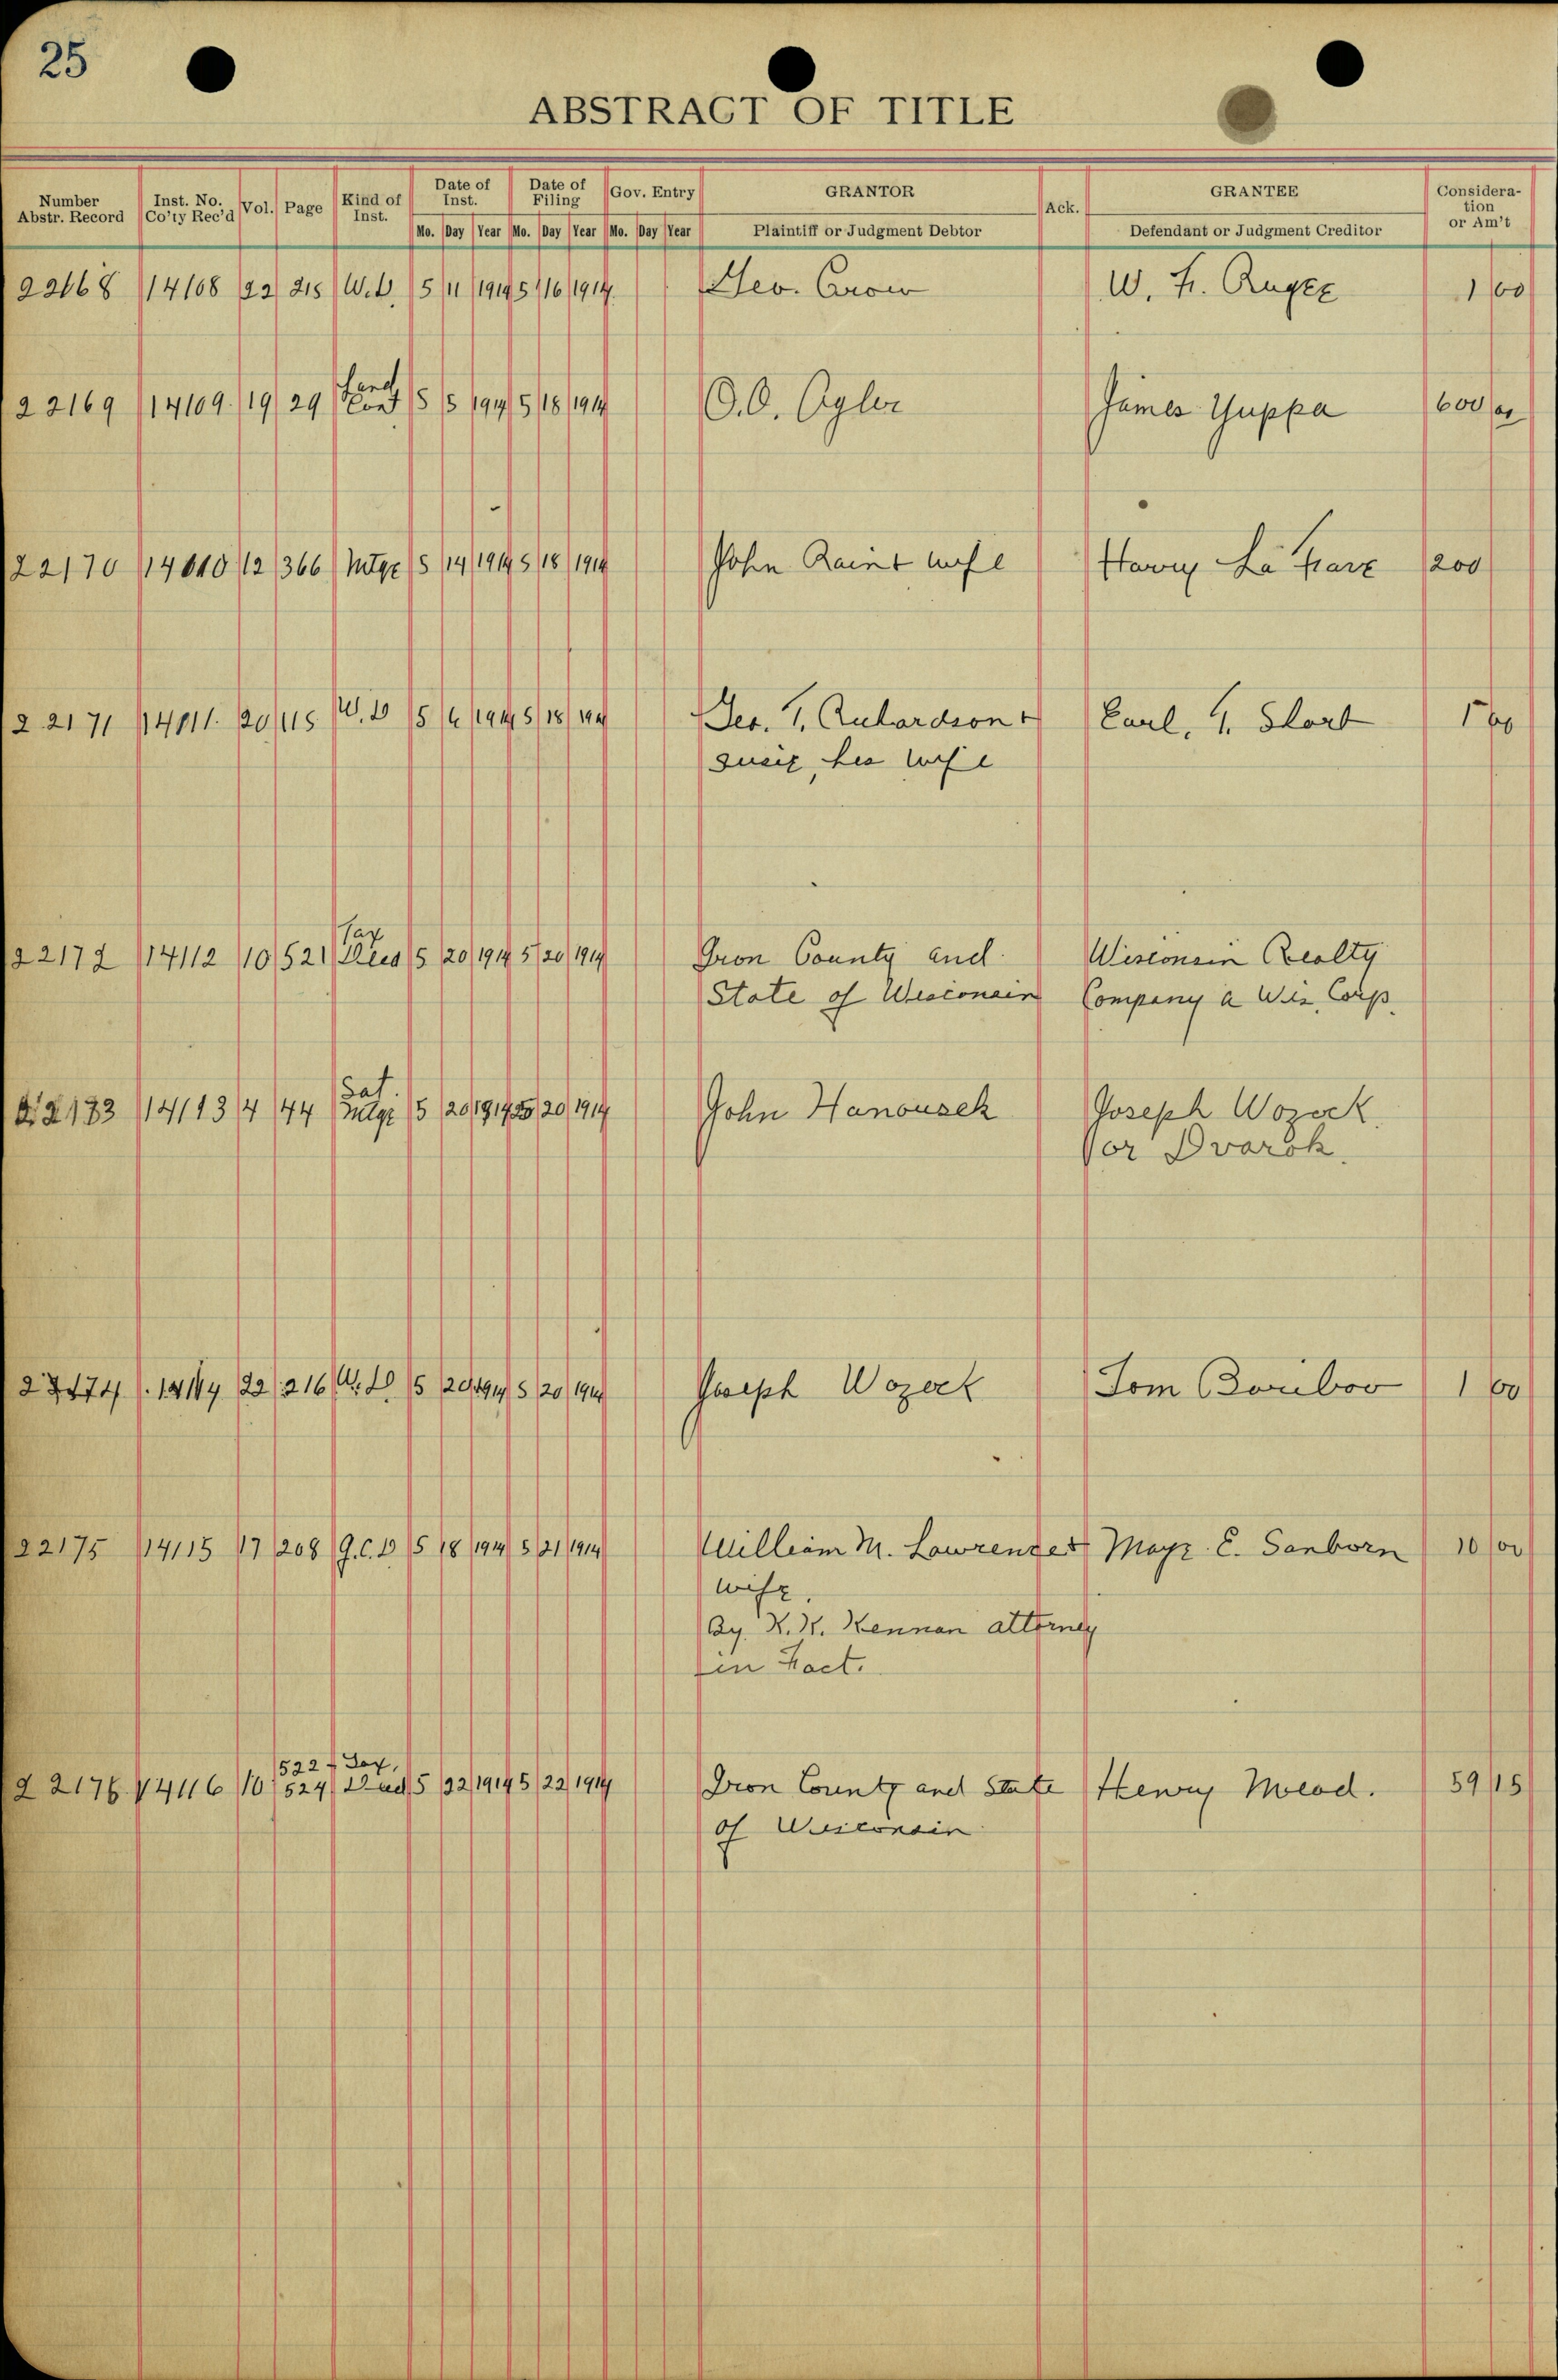 25
ABSTRACT OF TITLE
Number Abstr. Record Inst. No. Co'ty Rec'd Vol. Page Kind of Inst. Date of Inst. Date of Filing Gov. Entry GRANTOR Ack. GRANTEE Consideration or Am't
Mo. Day Year Mo. Day Year Mo. Day Year Plaintiff or Judgment Debtor Defendant or Judgment Creditor
22168 14108 22 215 W.D. 5 11 1914 5 16 1914 Geo. Crow W. F. Rugee 1 00
Land
22169 14109 19 29 Cont 5 5 1914 5 18 1914 O.O. Ogler James Yuppa 600 00
22170 12 366 Mtge 5 14 1914 5 18 1914 John wife Harry La 200
22171 20 115 W.D 5 1914 5 18 1914 Geo. T. Richardson + Carl. G. Short 1 00
Susie, his wife
Tax
22172 14112 10 521 Deed 5 20 1914 5 20 1914 Iron County and Wisconsin Realty
State of Wisconsin Company a Wis. Corp.
Sat.
14113 4 44 Mtge 5 20 1914 5 20 1914 John Hanousek Joseph Wozeck
or Dvorak.
14114 22 216 W.D 5 20 1914 5 20 1914 Joseph Wozeck Tom 1 00
22175 14115 17 208 Q.C.D 5 18 1914 5 21 1914 William M. Lawrence + Maye E. Sanborn 10 00
wife.
By K. K. Kennan attorney
in Fact.
522 - Tax,
22176 14116 10 524 Deed 5 22 1914 5 22 1914 Iron County and State Henry Mead. 59 15
of Wisconsin